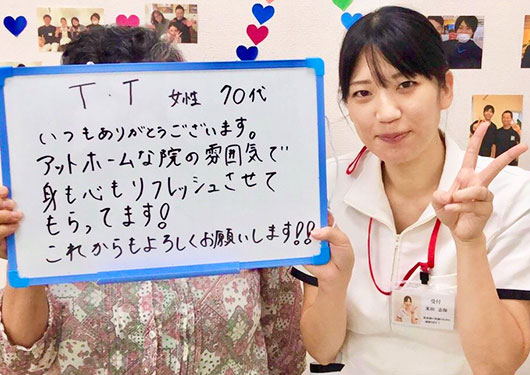 T.T 女性 70代
いつもありがとうございます。
アットホームな院の雰囲気で
身も心もリフレッシュさせて
もらってます!
これからもよろしくお願いします!!
受付